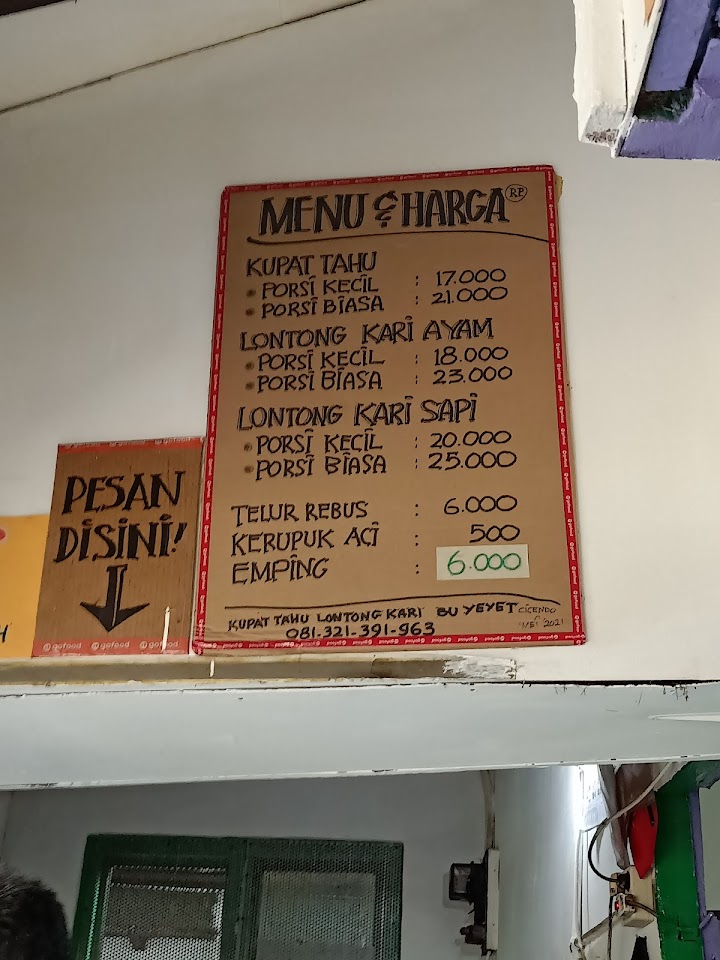 MENU & HARGA RP
KUPAT TAHU
• PORSI KECIL : 17.000
• PORSI BIASA : 21.000
LONTONG KARI AYAM
• PORSI KECIL : 18.000
• PORSI BIASA : 23.000
LONTONG KARI SAPI
• PORSI KECIL : 20.000
• PORSI BIASA : 25.000
TELUR REBUS : 6.000
KERUPUK ACI : 500
EMPING : 6.000
KUPAT TAHU LONTONG KARI BU YEYET CICENDO
081.321.391.963 2021
PESAN
DISINI!
gofood gofood gofood
H